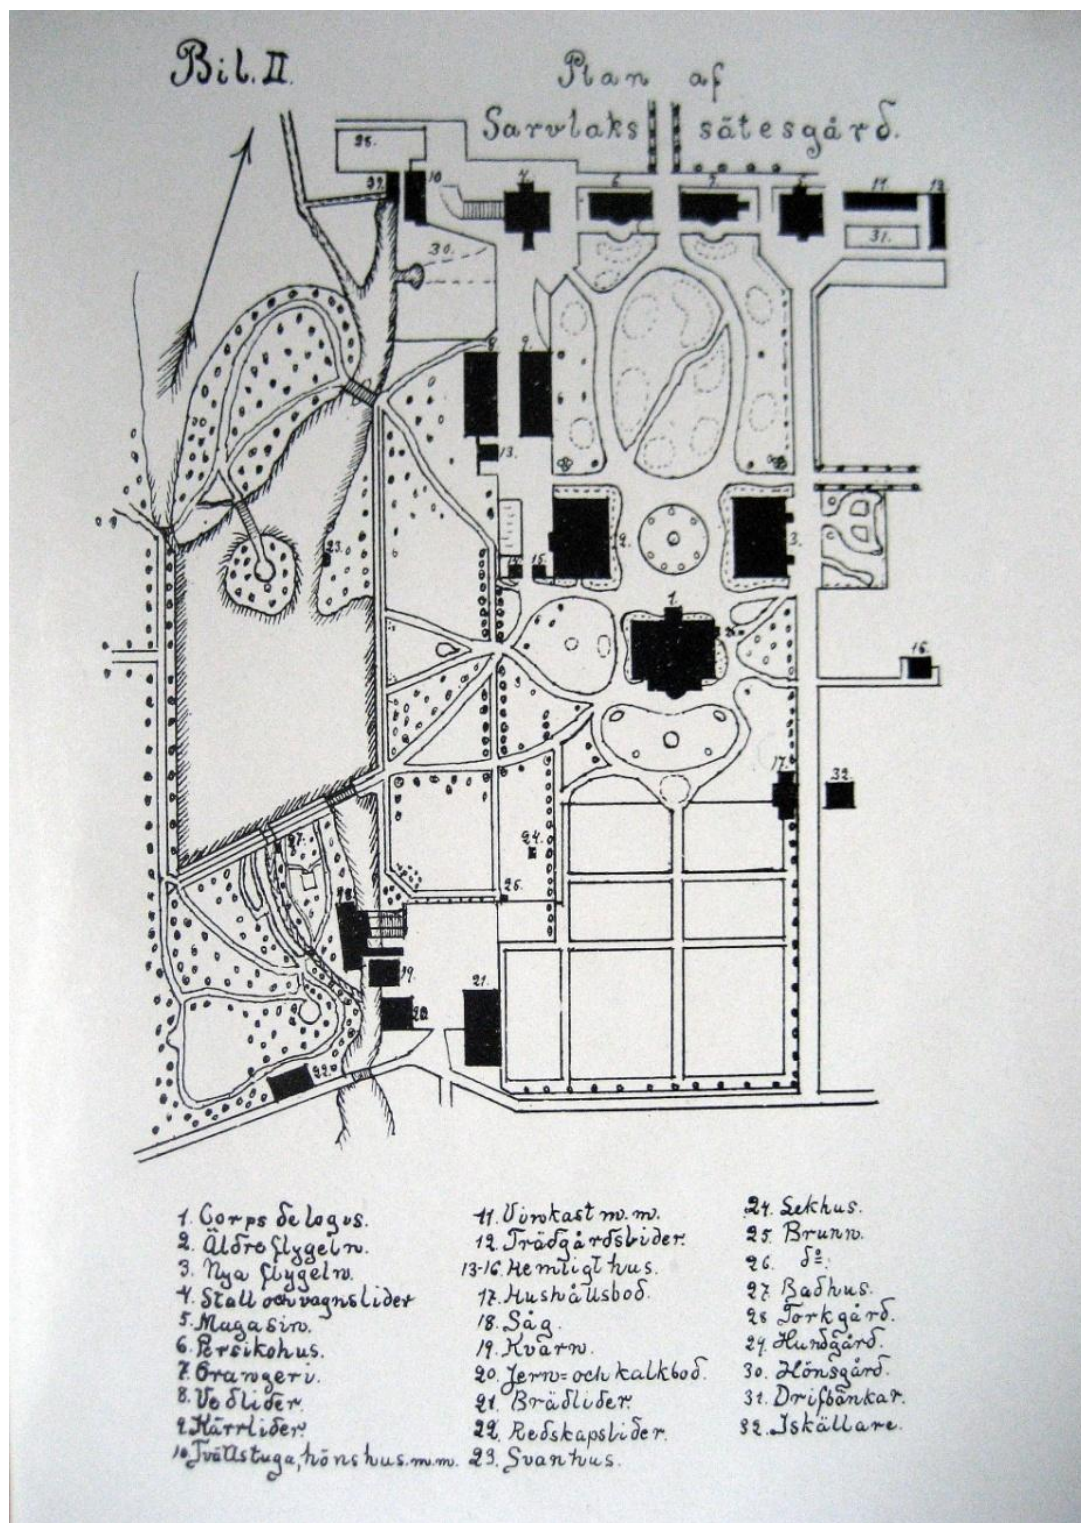 Bil. II.
Plan af
Sarvlaks sätesgård.
28.
29.
10
4.
6
7.
5.
11
12
31.
30.
8
9.
13.
23.
2.
3.
14
15.
1.
16.
17.
32.
24.
25.
27.
18
19.
20.
21.
22.
1. Corps de logis.
2. Äldre flygeln.
3. Nya flygeln.
4. Stall och vagnslider
5. Magasin.
6. Persikohus.
7. Orangeri.
8. Vedlider.
9. Kärrlider.
10. Tvättstuga, hönshus. m.m.
11. Vinkast m.m.
12. Trädgårdslider.
13-16. Hemligt hus.
17. Hushållsbod.
18. Såg.
19. Kvarn.
20. Jern= och kalkbod.
21. Brädlider.
22. Redskapslider.
23. Svanhus.
24. Lekhus.
25. Brunn.
26. do:
27. Badhus.
28 Torkgård.
29. Hundgård.
30. Hönsgård.
31. Drifbänkar.
32. Iskällare.